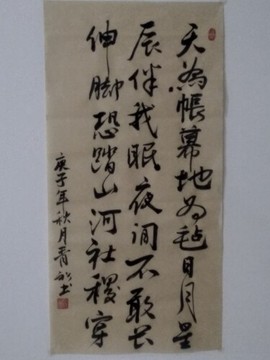 天为帐幕地为毡日月星
辰伴我眠夜间不敢长
伸脚恐踏山河社稷穿
庚子年秋月青松书